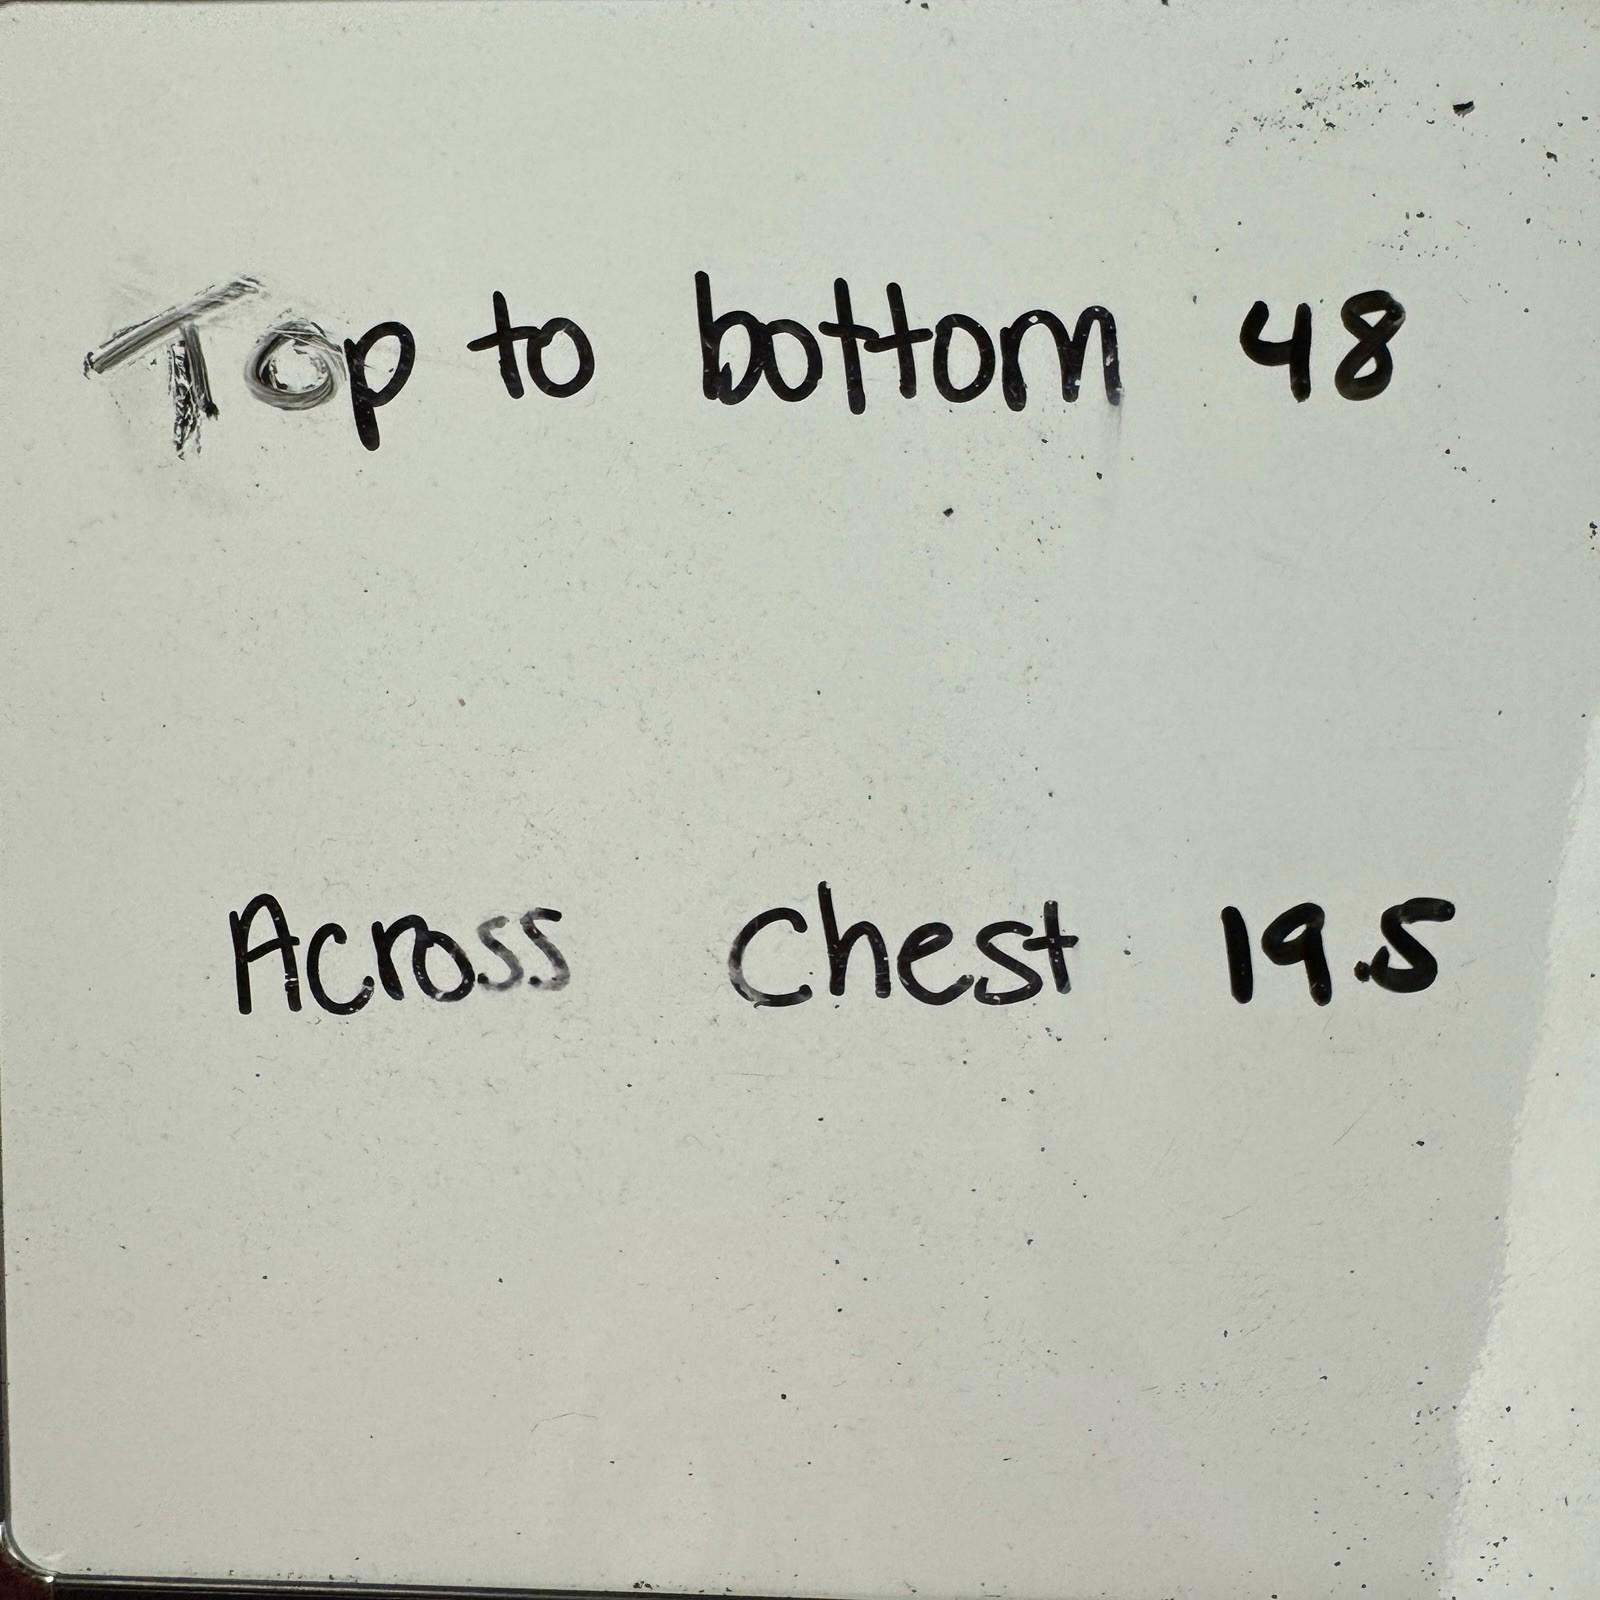 Top to bottom 48
Across Chest 19.5